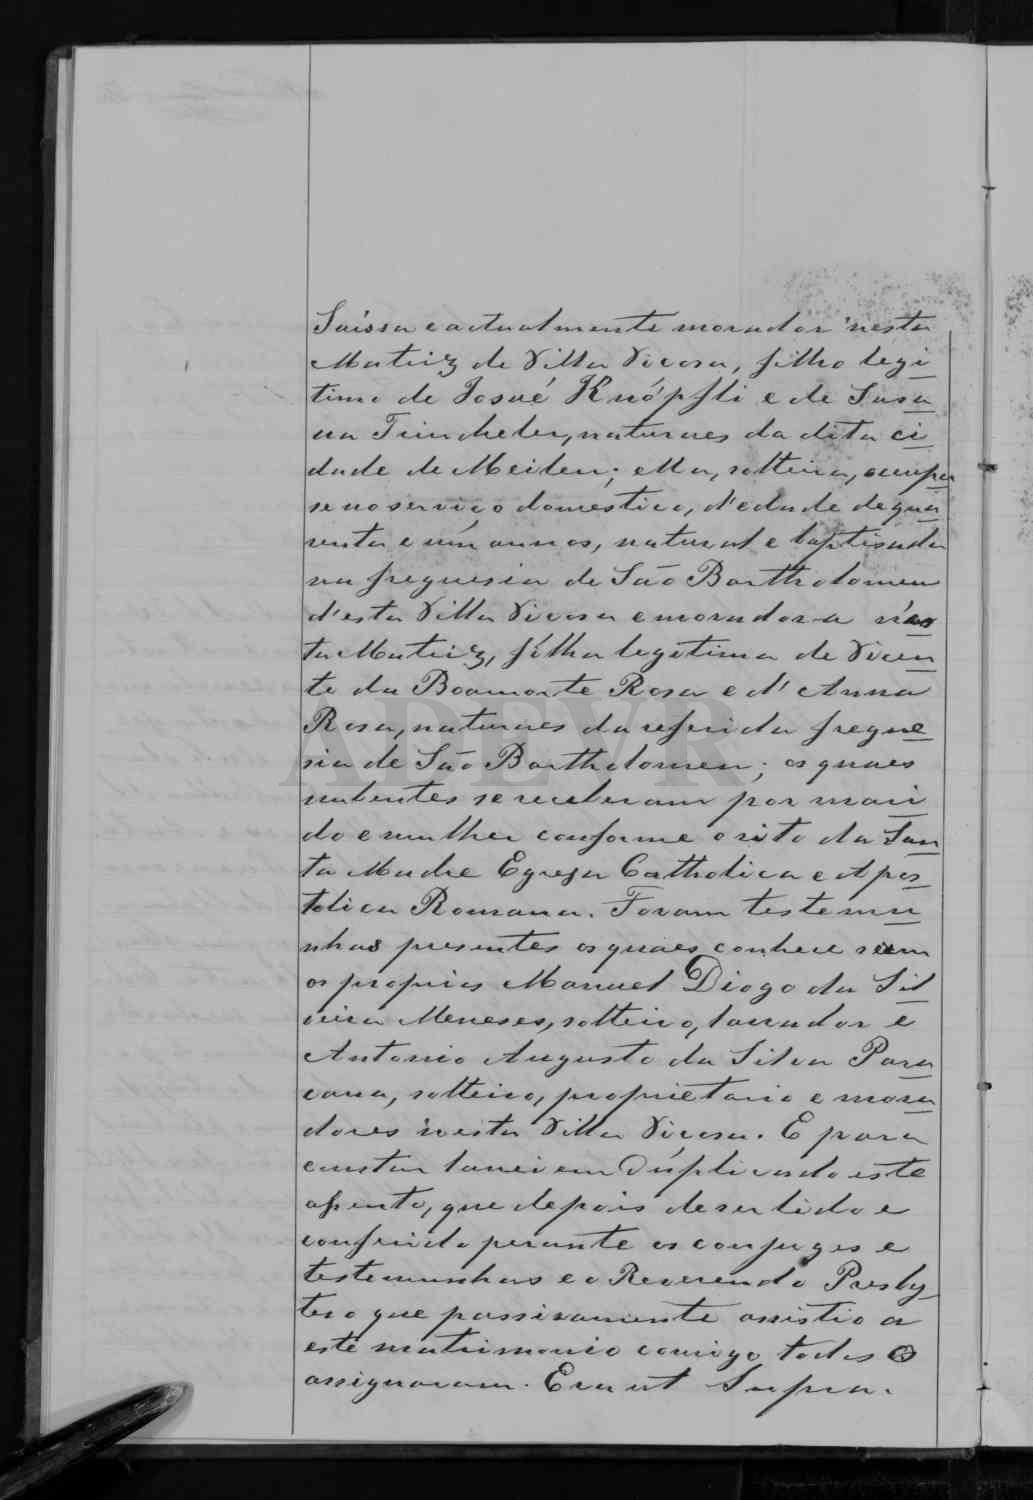 Suissa e actualmente morador nesta
Matriz de Villa Viçosa, filho legi
timo de Josué Knöpfli e de Susa
na Trindheler, naturaes da dita ci
dade de Meilen; ella, solteira, occupa
se no serviço domestico, d'edade de qua
renta e um annos, natural e baptisada
na freguesia de São Bartholomeu
d'esta Villa Viçosa e moradora n'es
ta Matriz, filha legitima de Vicen
te da Boamorte Rosa e d'Anna
Rosa, naturaes da referida fregue
sia de São Bartholomeu; os quaes
nubentes se receberam por mari
do e mulher conforme o rito da San
ta Madre Egreja Catholica e Apos
tolica Romana. Foram testemu
nhas presentes os quaes conheço serem
os proprios Manuel Diogo da Sil
veira Meneses, solteiro, lavrador e
Antonio Augusto da Silva Para
cana, solteiro, proprietario e mora
dores n'esta Villa Viçosa. E para
constar lancei em duplicado este
assento, que depois de ser lido e
conferido perante os conjuges e
testemunhas e o Reverendo Presby
tero que passivamente assistio a
este matrimonio comigo todos o
assignaram. Era ut Supra.
ADEVR